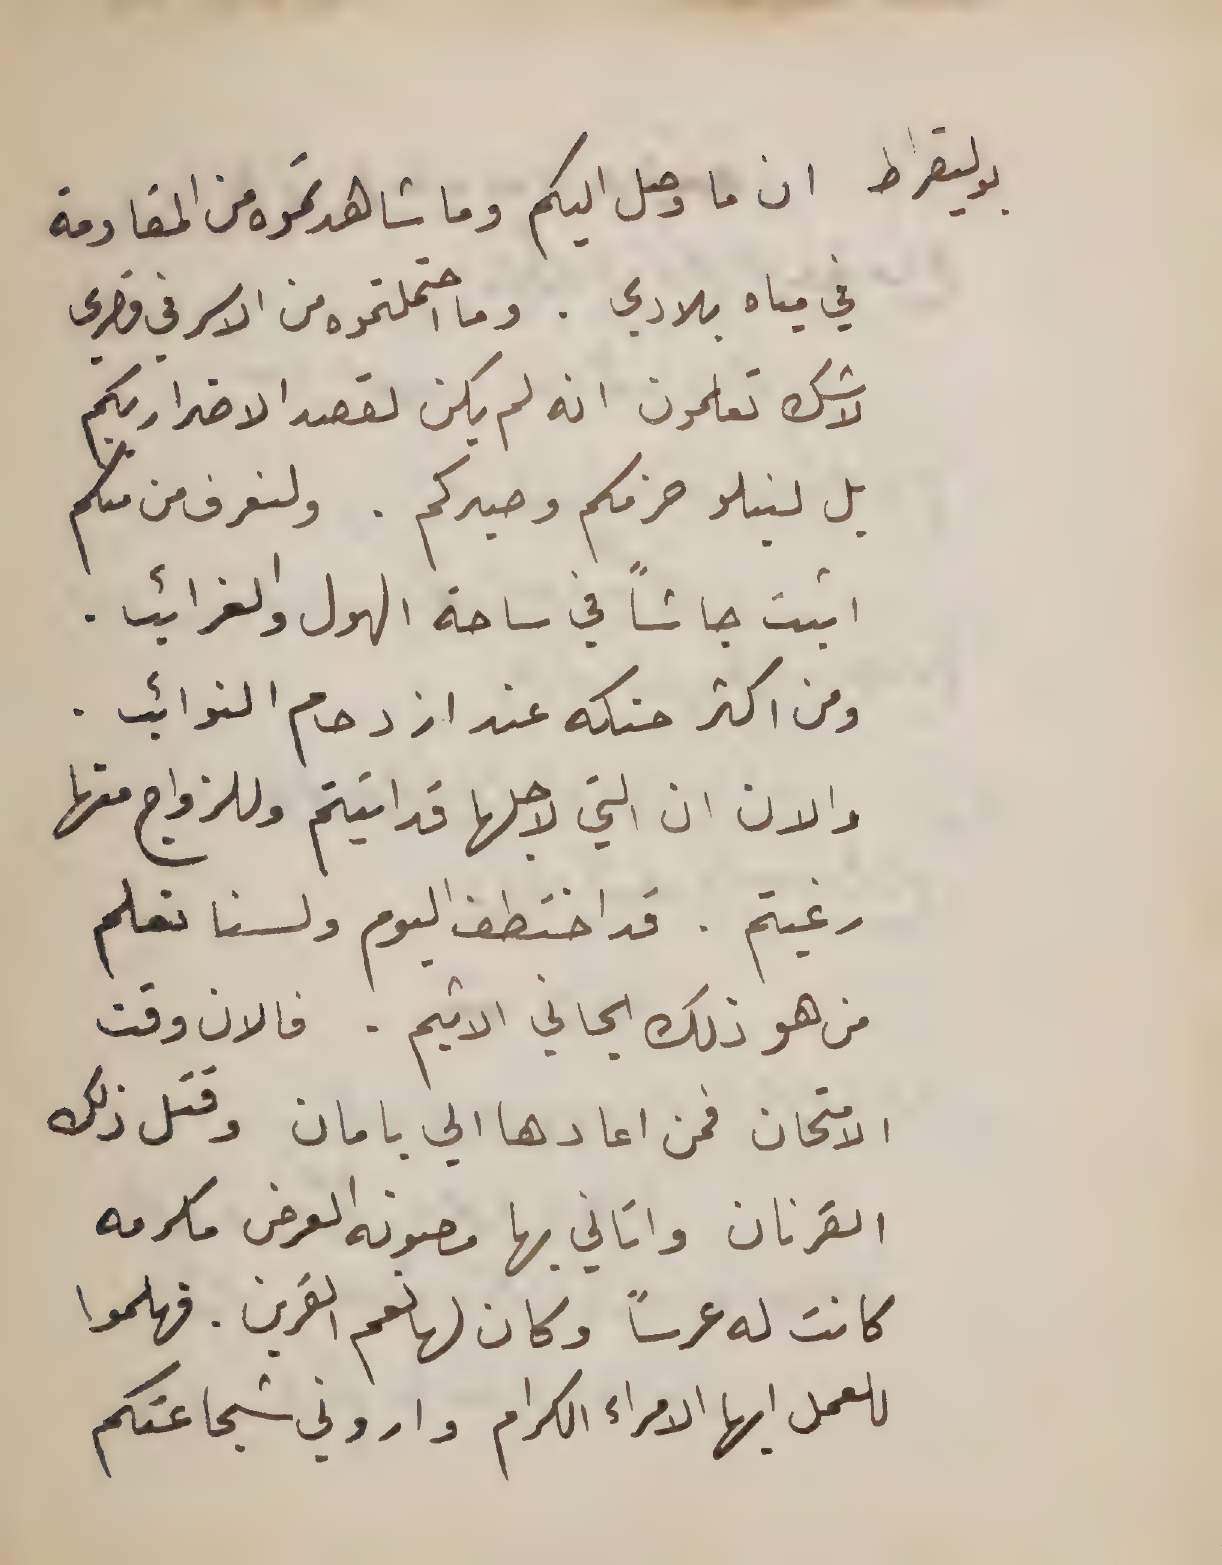 بوليقراط ان ما وصل اليكم وما شاهدتموه من المقاومة
في مياه بلادي . وما احتملتموه من الاسر في قصري
لاشك تعلمون انه لم يكن لقصد الاضرار بكم
بل لنبلو حزمكم وصبركم . ولنعرف من منكم
اثبت جاشاً في ساحة الهول والغرائب .
ومن اكثر حنكه عند ازدحام النوائب .
والان ان التي لاجلها قد اتيتم وللزواج منها
رغبتم . قد اختطفت اليوم ولسنا نعلم
من هو ذلك الجاني الاثيم . فالان وقت
الامتحان فمن اعادها الي بامان وقتل ذلك
القرنان واتاني بها مصونه العرض مكرمه
كانت له عرساً وكان لها نعم القرين . فهلموا
للعمل ايها الامراء الكرام واروني شجاعتكم